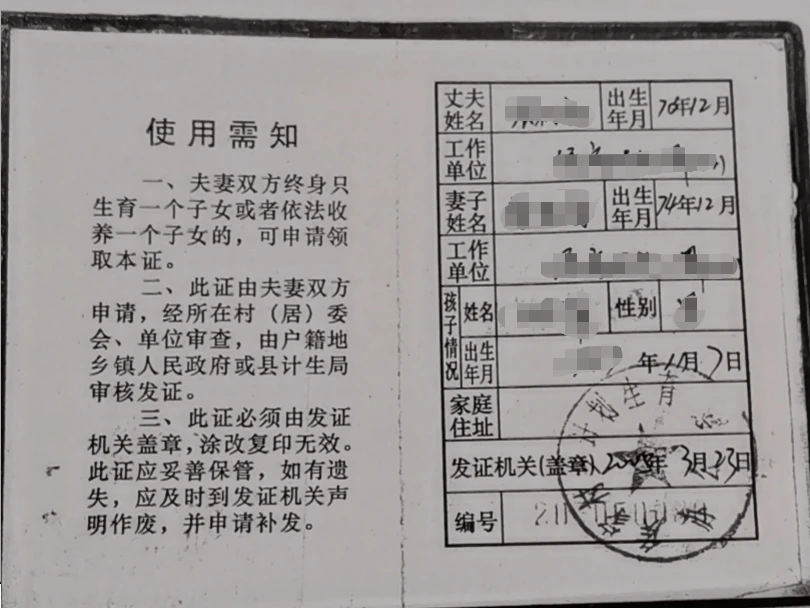 使用需知
一、夫妻双方终身只
生育一个子女或者依法收
养一个子女的，可申请领
取本证。
二、此证由夫妻双方
申请，经所在村（居）委
会、单位审查，由户籍地
乡镇人民政府或县计生局
审核发证。
三、此证必须由发证
机关盖章，涂改复印无效。
此证应妥善保管，如有遗
失，应及时到发证机关声
明作废，并申请补发。
丈夫姓名 出生年月 76年12月
工作单位
妻子姓名 出生年月 74年12月
工作单位
孩子情况 姓名 性别
出生年月 年11月7日
家庭住址
发证机关(盖章) 年3月23日
编号
计划生育